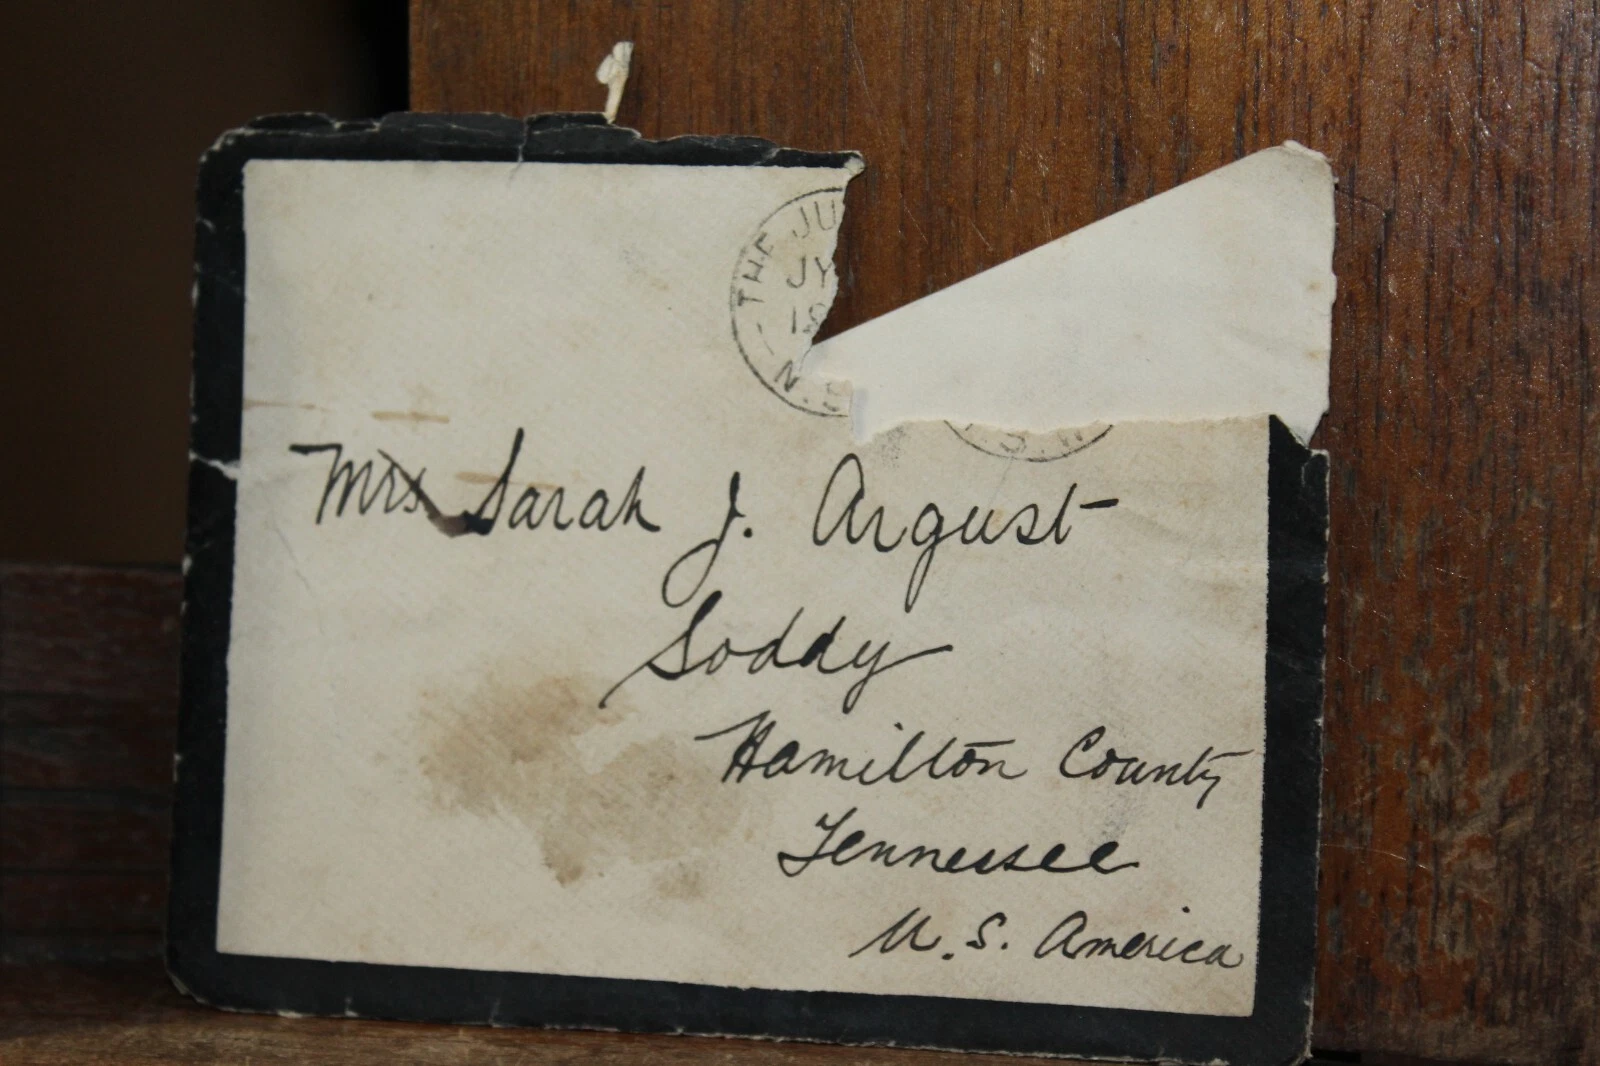 THE JU
JY
N.S
.S.W
Mrs Sarah J. Argust
Soddy
Hamilton County
Tennessee
U. S. America